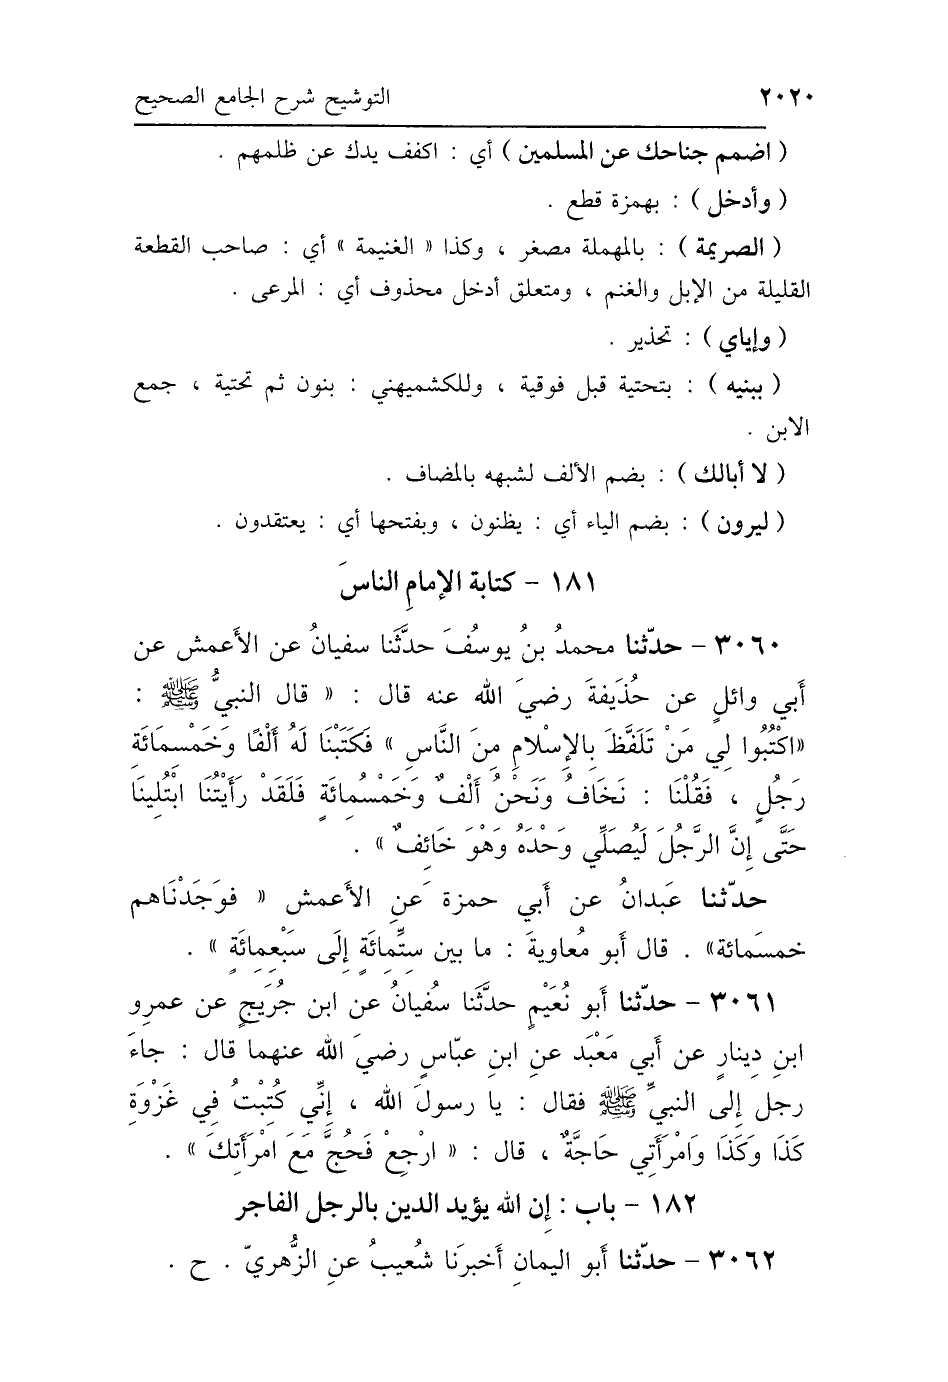 ٢٠٢٠ التوشيح شرح الجامع الصحيح
( اضمم جناحك عن المسلمين ) أي : اكفف يدك عن ظلمهم .
( وأدخل ) : بهمزة قطع .
( الصريمة ) : بالمهملة مصغر ، وكذا « الغنيمة » أي : صاحب القطعة
القليلة من الإبل والغنم ، ومتعلق أدخل محذوف أي : المرعى .
( وإياي ) : تحذير .
( ببنيه ) : بتحتية قبل فوقية ، وللكشميهني : بنون ثم تحتية ، جمع
الابن .
( لا أبالك ) : بضم الألف لشبهه بالمضاف .
( ليرون ) : بضم الياء أي : يظنون ، وبفتحها أي : يعتقدون .
١٨١ - كتابة الإمامِ الناسَ
٣٠٦٠ - حدّثنا محمدُ بنُ يوسُفَ حدَّثَنا سفيانُ عن الأعمشِ عن
أَبي وائلٍ عن حُذَيفةَ رضيَ الله عنه قال : « قال النبيُّ ﷺ :
«اكْتُبُوا لِي مَنْ تَلَفَّظَ بِالإِسْلامِ مِنَ النَّاسِ » فَكَتَبْنَا لَهُ أَلْفًا وَخَمْسَمائَةِ
رَجُلٍ ، فَقُلْنَا : نَخَافُ وَنَحْنُ أَلْفٌ وَخَمْسُمائَةٍ فَلَقَدْ رَأَيْتُنَا ابْتُلِينَا
حَتَّى إِنَّ الرَّجُلَ لَيُصَلِّي وَحْدَهُ وَهْوَ خَائِفٌ » .
حدّثنا عَبدانُ عن أَبي حمزة عَنِ الأَعمش « فوَجَدْنَاهم
خمسَمائة» . قال أَبو مُعاويةَ : ما بين ستِّمائَةٍ إِلَى سَبْعِمائَةٍ » .
٣٠٦١ - حدّثنا أبو نُعَيْمٍ حدَّثَنا سُفيانُ عن ابن جُرَيجٍ عن عمرِو
ابنِ دِينارٍ عن أَبي مَعْبَد عنِ ابنِ عبّاسٍ رضيَ الله عنهما قال : جاءَ
رجل إلى النبيِّ ﷺ فقال : يا رسولَ الله ، إِنِّي كُتِبْتُ فِي غَزْوَةِ
كَذَا وَكَذَا وَامْرَأَتِي حَاجَّةٌ ، قال : « ارْجِعْ فَحُجَّ مَعَ امْرَأَتِكَ » .
١٨٢ - باب : إِن الله يؤيد الدين بالرجل الفاجر
٣٠٦٢ - حدّثنا أَبو اليمانِ أَخبرَنا شُعيبُ عنِ الزُّهريّ . ح .